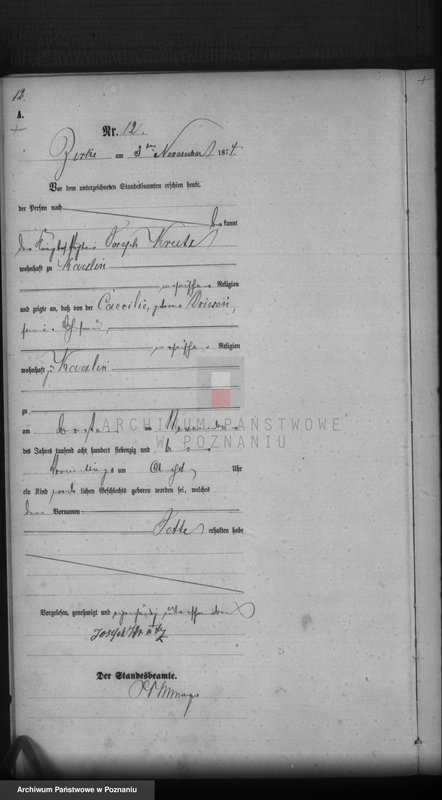 12.
A.
Nr. 12.
Zirke am 3ten November 1874.
Vor dem unterzeichneten Standesbeamten erschien heute,
der Person nach bekannt
der Joseph Krutz
wohnhaft zu Kaczlin
mosaischer Religion
und zeigte an, daß von der Caecilie, geborene
mosaischer Religion
wohnhaft zu Kaczlin
zu
am ersten November
des Jahres tausend acht hundert siebenzig und
Vormittags um Acht Uhr
ein Kind lichen Geschlechts geboren worden sei, welches
den Vornamen
Jette erhalten habe
Vorgelesen, genehmigt und
Joseph Krutz
Der Standesbeamte.
ARCHIWUM PAŃSTWOWE
W POZNANIU
Archiwum Państwowe w Poznaniu